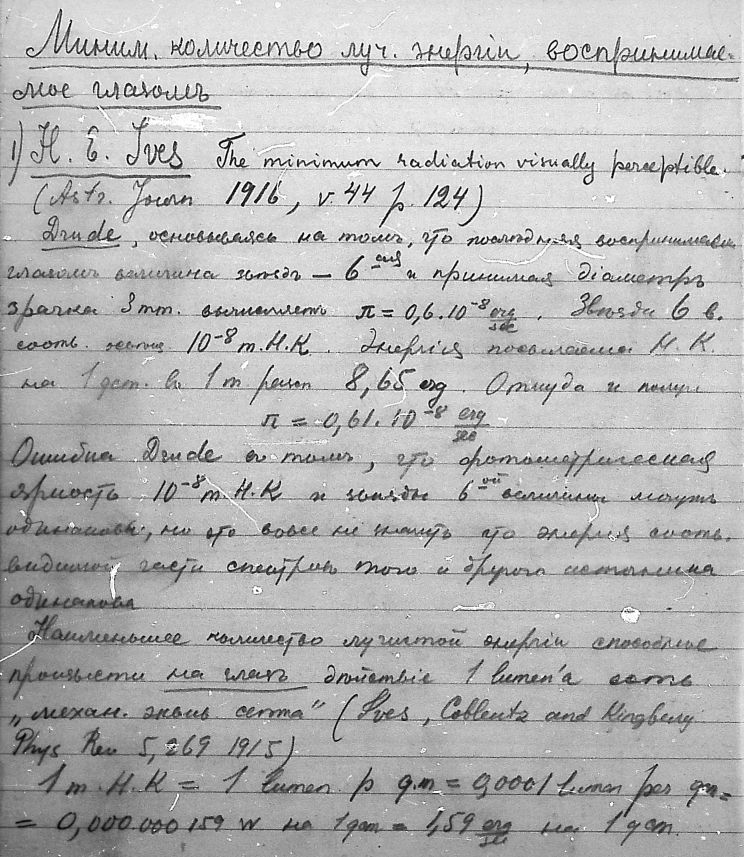 Миним. количество луч. энергіи, воспринимае-
мое глазомъ
1) H. E. Ives The minimum radiation visually perceptible.
(Astr. Journ 1916, v. 44 p. 124)
Drude, основываясь на томъ, что послѣдняя воспринимаемая
глазомъ величина звѣздъ – 6ая и принимая діаметръ
зрачка 3 mm. вычисляетъ π = 0,6.10⁻⁸ erg/sec. Звѣзда 6 в.
соотв. 10⁻⁸ m.H.K. Энергія посылаемая H.K.
на 1 qcm. въ 1 m 8,65 erg. Откуда и получ
π = 0,61.10⁻⁸ erg/sec
Ошибка Drude въ томъ, что фотометрическая
яркость 10⁻⁸ m.H.K и звѣзды 6ой величины могутъ
одинаковы, но это вовсе не значитъ что энергія соотв.
видимой части спектровъ того и другого источника
одинакова
Наименьшее количество лучистой энергіи способное
произвести на глазъ дѣйствіе 1 lumen'а есть
„механ. эквив. свѣта" (Ives, Coblentz and Kingsbury
Phys Rev 5, 269 1915)
1 m.H.K = 1 lumen p q.m = 0,0001 lumen per qcm =
= 0,000 000 159 W на 1 qcm = 1,59 erg/sec на 1 qcm.